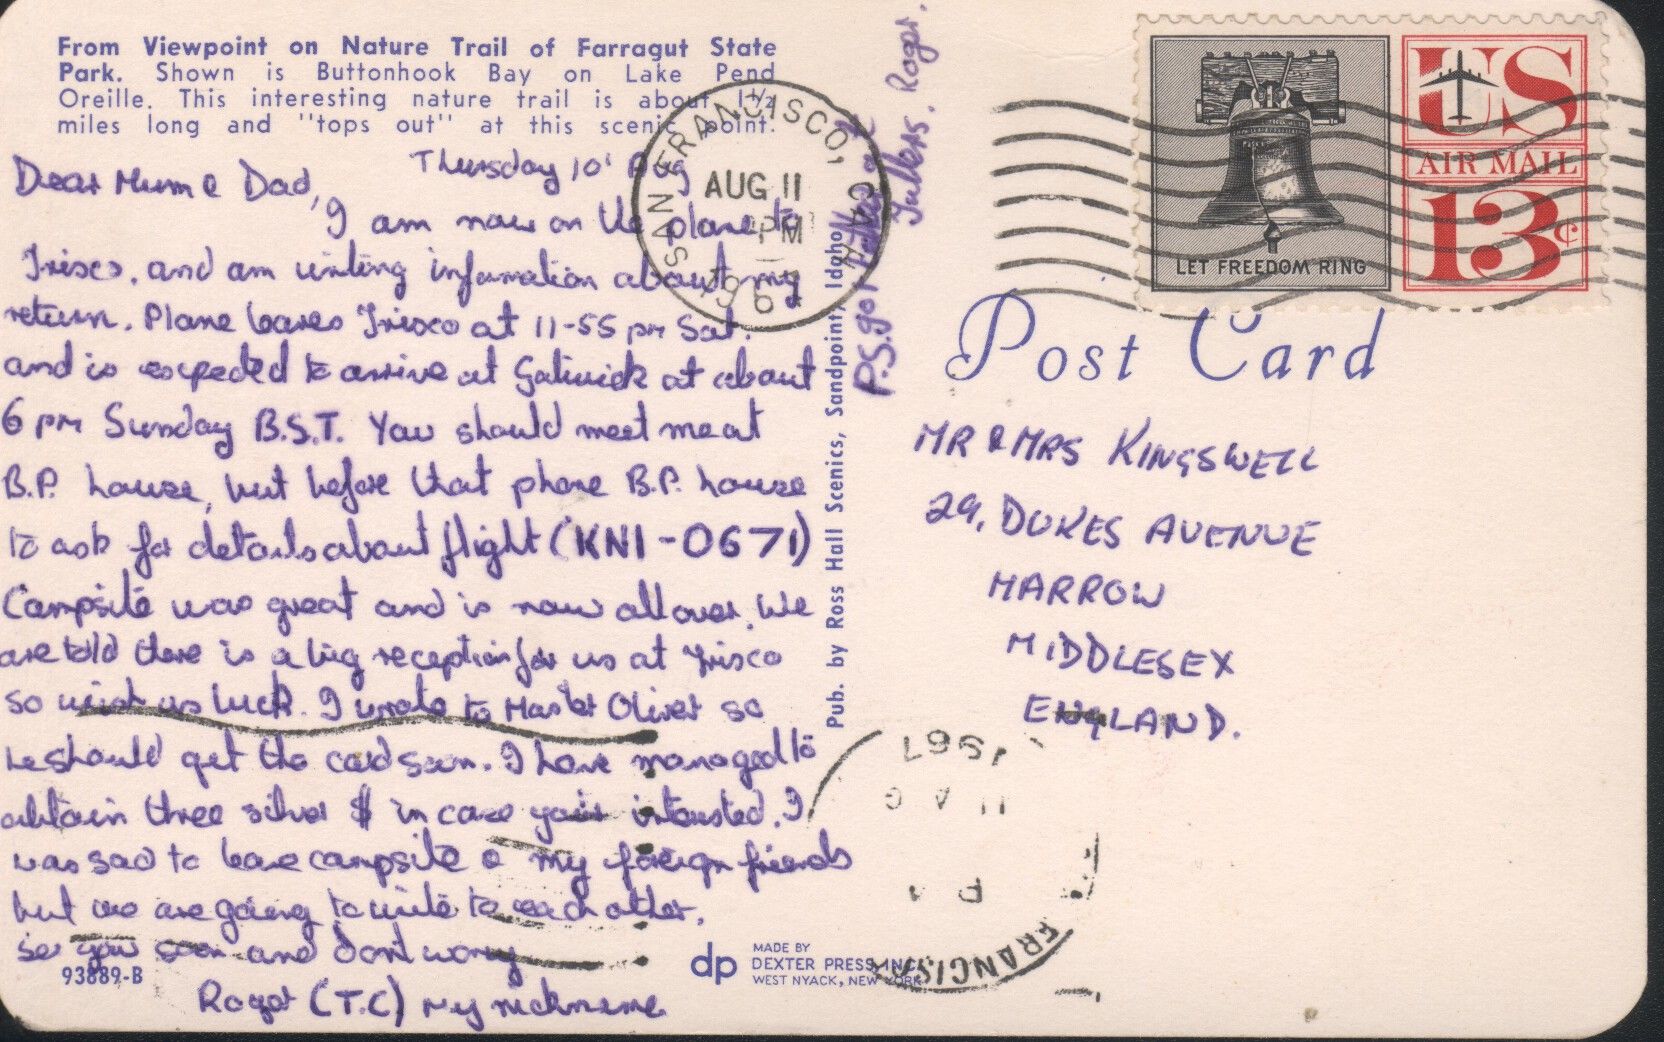 From Viewpoint on Nature Trail of Farragut State
Park. Shown is Buttonhook Bay on Lake Pend
Oreille. This interesting nature trail is about 1½
miles long and "tops out" at this scenic point.
Thursday 10' Aug
Dear Mum & Dad,
I am now on the plane to
Frisco, and am writing information about my
return. Plane leaves Frisco at 11-55 pm Sat.
and is expected to arrive at Gatwick at about
6 pm Sunday B.S.T. You should meet me at
B.P. house, but before that phone B.P. house
to ask for details about flight (KNI-0671)
Campsite was great and is now all over. We
are told there is a big reception for us at Frisco
so wish us luck. I wrote to Master Oliver so
he should get the card soon. I have managed to
obtain three silver $ in case your intersted. I
was sad to leave campsite & my foreign friends
but we are going to write to each other.
see you soon and dont worry
93889-B
Roger (T.C) my nickname
P.S. got
Roger.
Pub. by Ross Hall Scenics, Sandpoint, Idaho
dp
MADE BY
DEXTER PRESS, INC.
WEST NYACK, NEW YORK
SAN FRANCISCO, CA
AUG 11
PM
1967
LET FREEDOM RING
US
AIR MAIL
13¢
Post Card
MR & MRS KINGSWELL
29, DUKES AVENUE
HARROW
MIDDLESEX
ENGLAND.
1967
AUG 11
PM
FRANCISC